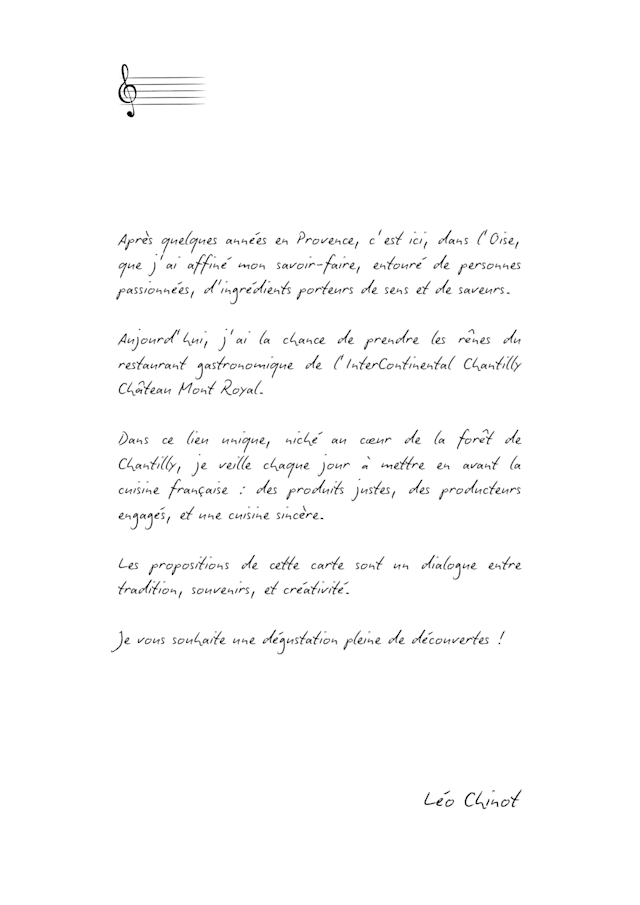 Après quelques années en Provence, c'est ici, dans l'Oise,
que j'ai affiné mon savoir-faire, entouré de personnes
passionnées, d'ingrédients porteurs de sens et de saveurs.
Aujourd'hui, j'ai la chance de prendre les rênes du
restaurant gastronomique de l'InterContinental Chantilly
Château Mont Royal.
Dans ce lieu unique, niché au cœur de la forêt de
Chantilly, je veille chaque jour à mettre en avant la
cuisine française : des produits justes, des producteurs
engagés, et une cuisine sincère.
Les propositions de cette carte sont un dialogue entre
tradition, souvenirs, et créativité.
Je vous souhaite une dégustation pleine de découvertes !
Léo Chinot